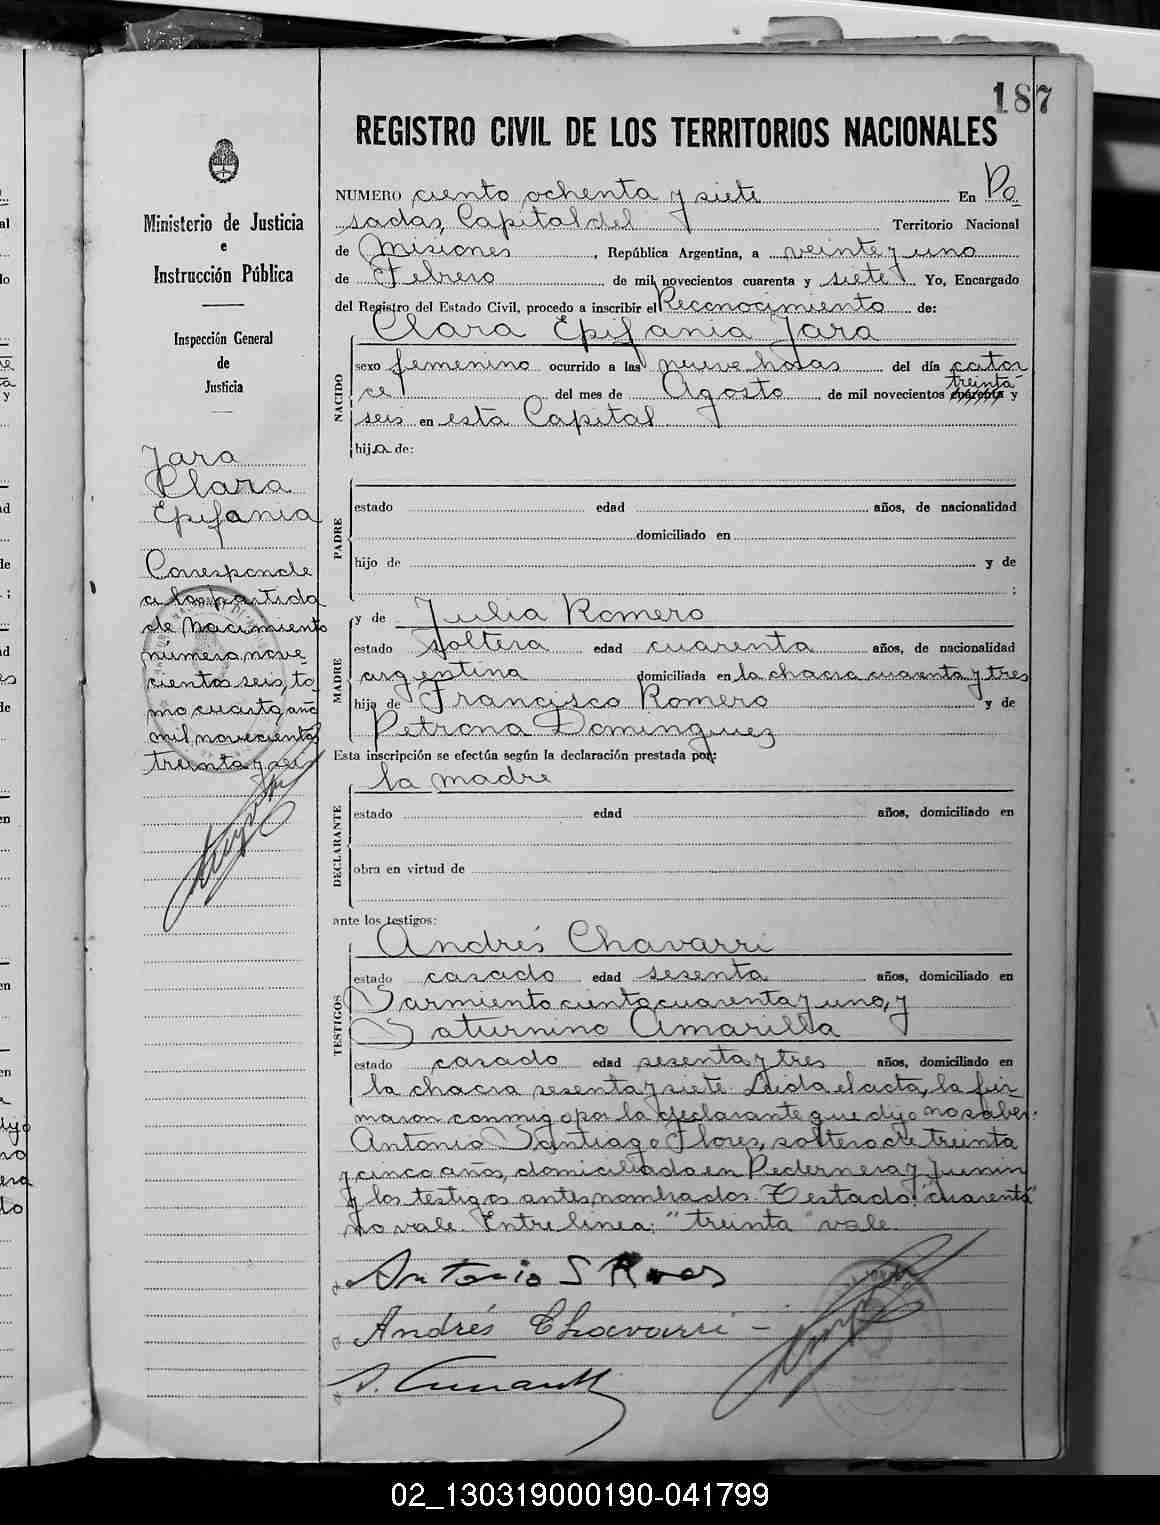 187
REGISTRO CIVIL DE LOS TERRITORIOS NACIONALES
Ministerio de Justicia
e
Instrucción Pública
Inspección General
de
Justicia
Jara
Clara
Epifania
Corresponde
a la partida
de Nacimiento
número nove-
cientos seis, to-
mo cuarto, año
mil novecientos
treinta y seis
NUMERO ciento ochenta y siete En Po
sadas, Capital del Territorio Nacional
de Misiones, República Argentina, a veinte y uno
de Febrero de mil novecientos cuarenta y siete Yo, Encargado
del Registro del Estado Civil, procedo a inscribir el Reconocimiento de:
Clara Epifania Jara
NACIDO
sexo femenino ocurrido a las nueve horas del día cator
ce del mes de Agosto de mil novecientos cuarenta treinta y
seis en esta Capital
hija de:
PADRE
estado edad años, de nacionalidad
domiciliado en
hijo de y de
;
MADRE
y de Julia Romero
estado soltera edad cuarenta años, de nacionalidad
argentina domiciliada en la chacra cuarenta y tres
hija de Francisco Romero y de
Petrona Dominguez
Esta inscripción se efectúa según la declaración prestada por:
la madre
DECLARANTE
estado edad años, domiciliado en
obra en virtud de
ante los testigos:
TESTIGOS
Andrés Chavarri
estado casado edad sesenta años, domiciliado en
Sarmiento ciento cuarenta y uno, y
Saturnino Amarilla
estado casado edad sesenta y tres años, domiciliado en
la chacra sesenta y siete. Leida el acta, la fir-
maron conmigo por la declarante que dijo no saber:
Antonio Santiago Flores, soltero de treinta
y cinco años, domiciliado en Pedernera y Junin
y los testigos antes nombrados. Testado: "cuarenta"
no vale. Entre linea: "treinta" vale.
Antonio S
Andrés Chavarri
02_130319000190-041799